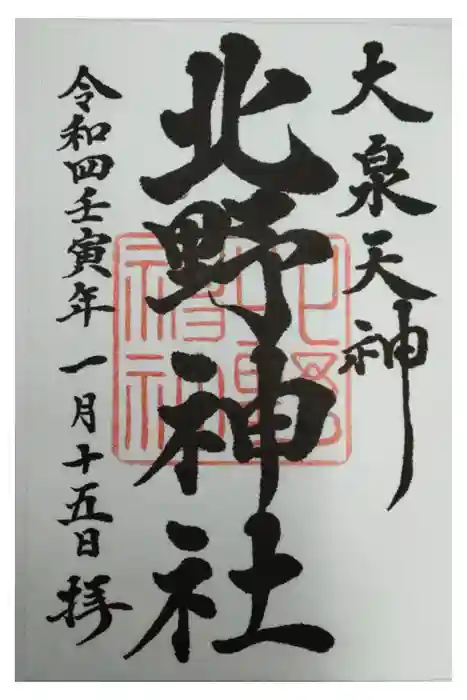 大泉天神
北野神社
令和四壬寅年一月十五日拝
北野神社